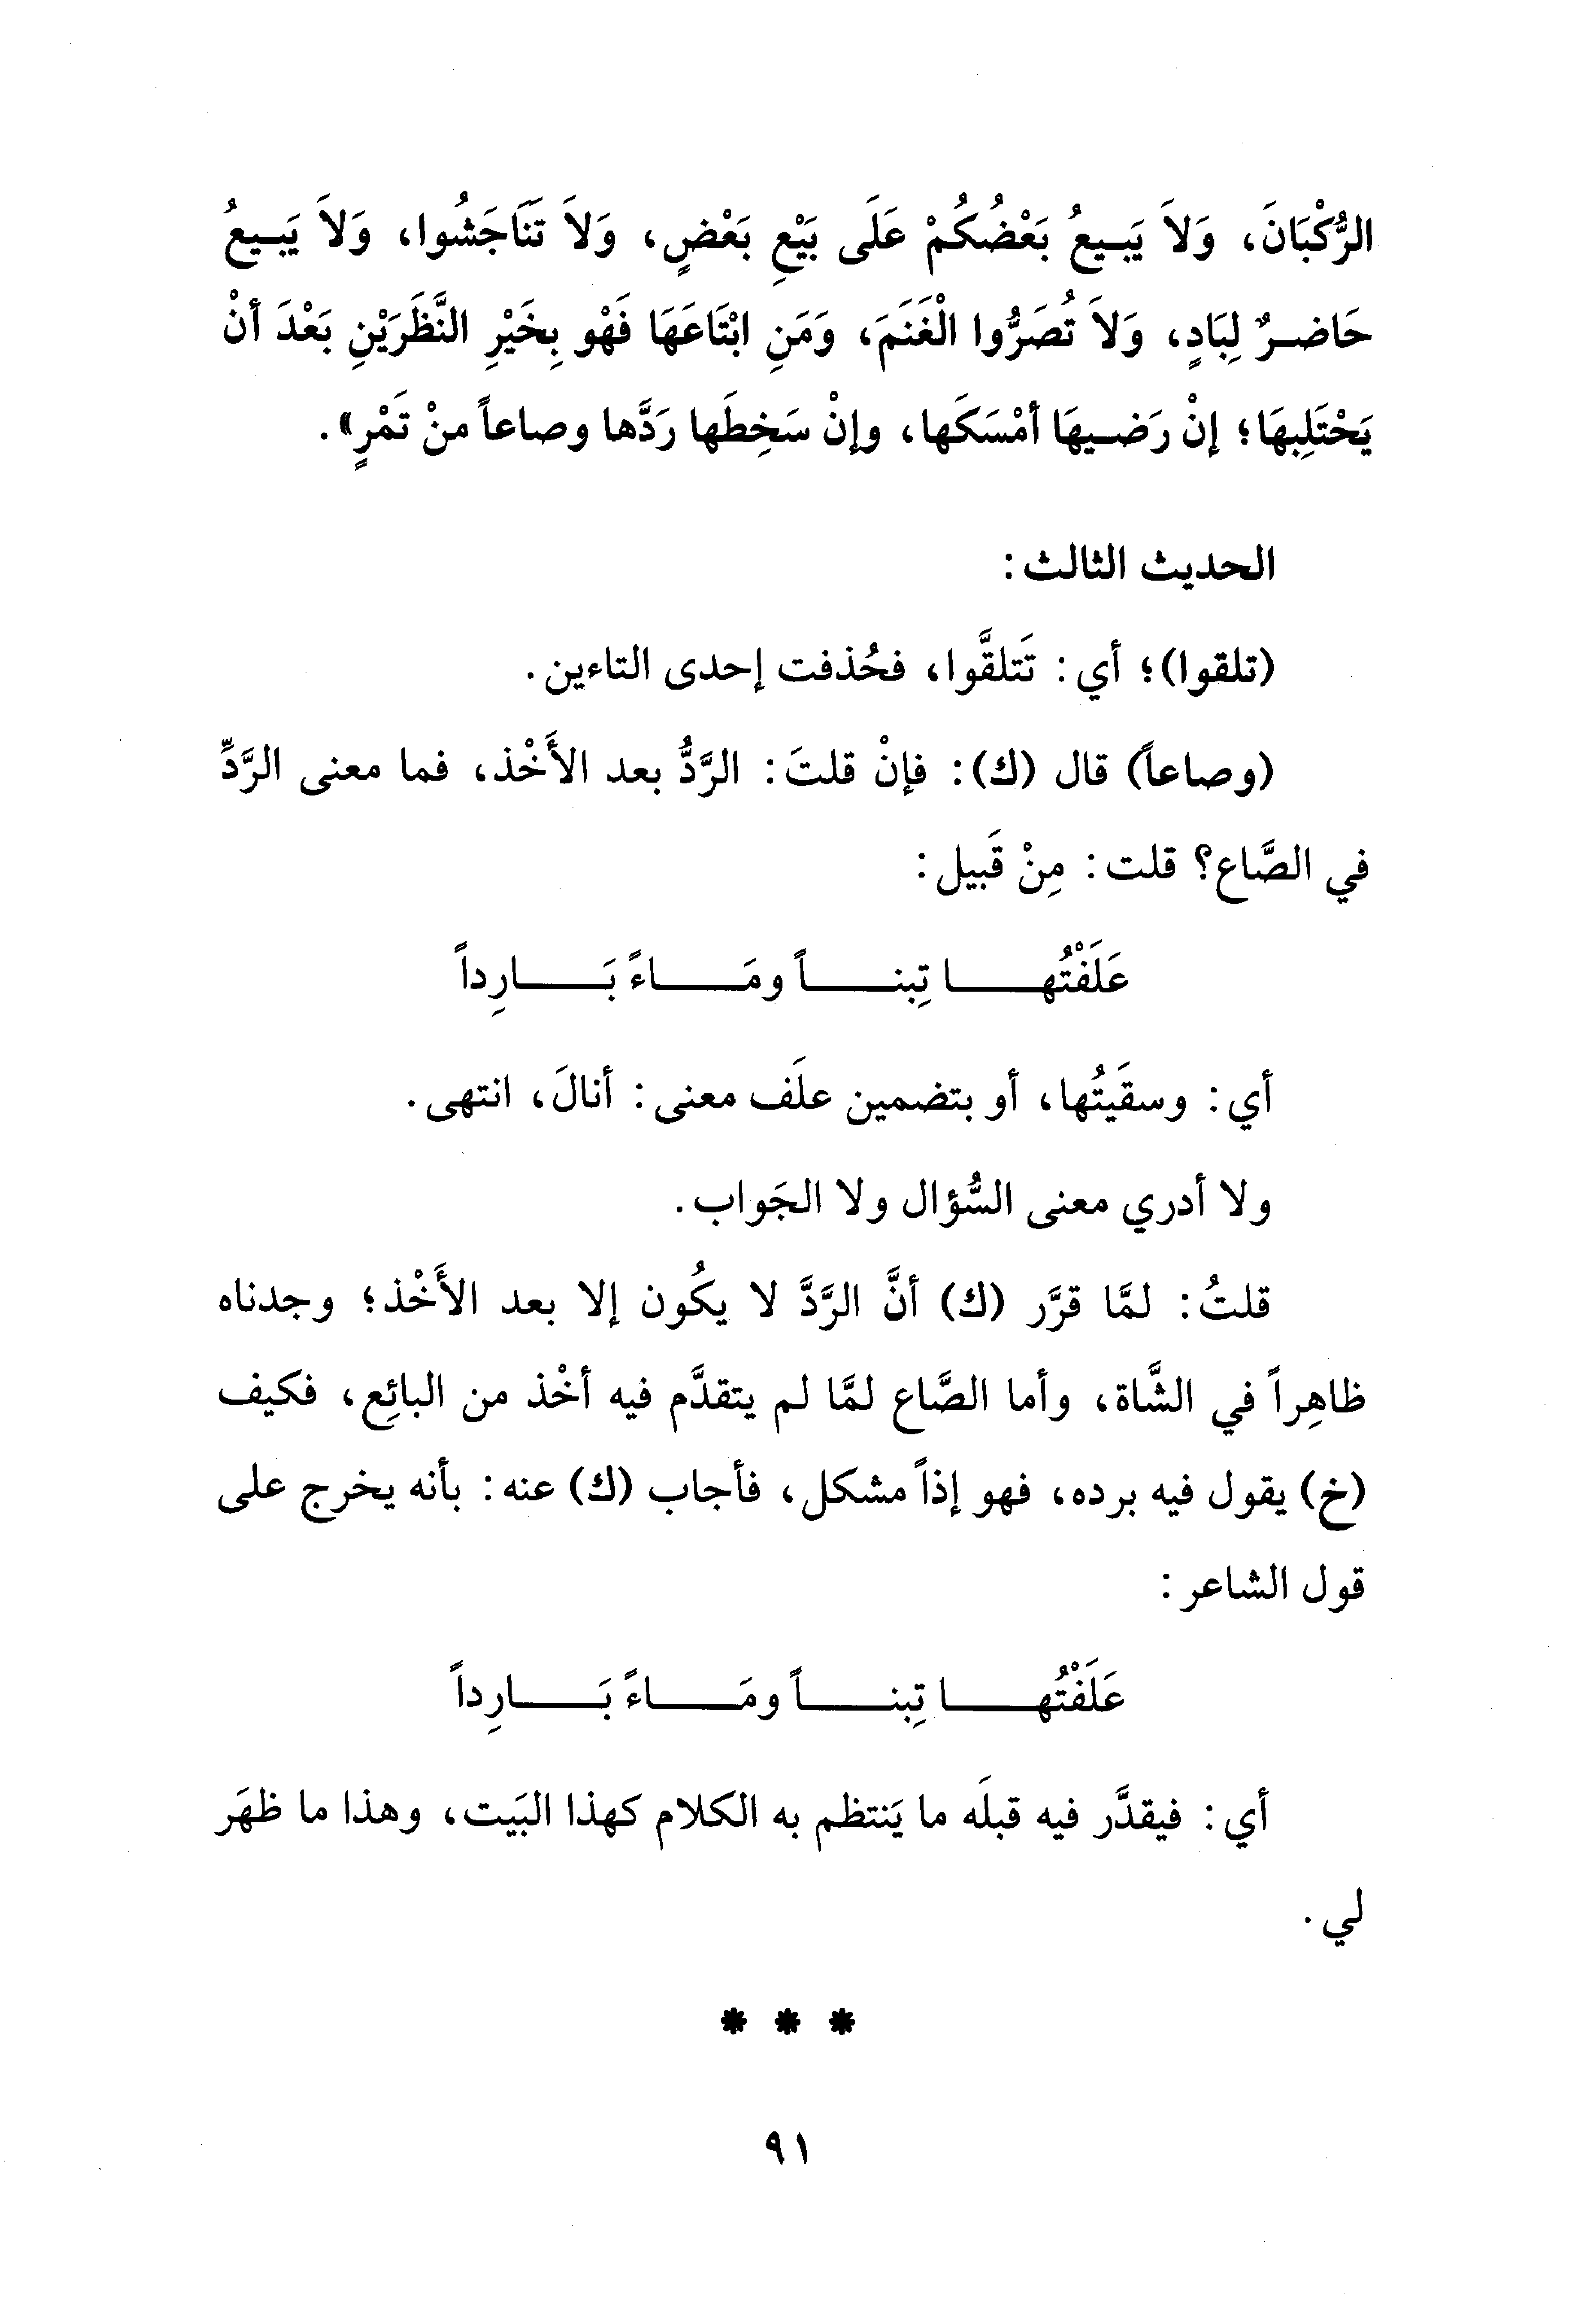 الرُّكْبَانَ، وَلاَ يَبِيعُ بَعْضُكُمْ عَلَى بَيْعِ بَعْضٍ، وَلاَ تَنَاجَشُوا، وَلاَ يَبِيعُ
حَاضرٌ لِبَادٍ، وَلاَ تُصَرُّوا الْغَنَمَ، وَمَنِ ابْتَاعَهَا فَهْو بِخَيْرِ النَّظَرَيْنِ بَعْدَ أنْ
يَحْتَلِبهَا؛ إنْ رَضيهَا أمْسَكَها، وإنْ سَخِطَها رَدَّها وصاعاً منْ تَمْرٍ».
الحديث الثالث:
(تلقوا)؛ أي: تَتلقَّوا، فحُذفت إحدى التاءين.
(وصاعاً) قال (ك): فإنْ قلتَ: الرَّدُّ بعد الأَخْذ، فما معنى الرَّدِّ
في الصَّاع؟ قلت: مِنْ قَبيل:
عَلَفْتُها تِبناً ومَاءً بَارِداً
أي: وسقَيتُها، أو بتضمين علَف معنى: أنالَ، انتهى.
ولا أدري معنى السُّؤال ولا الجَواب.
قلتُ: لمَّا قرَّر (ك) أنَّ الرَّدَّ لا يكُون إلا بعد الأَخْذ؛ وجدناه
ظاهِراً في الشَّاة، وأما الصَّاع لمَّا لم يتقدَّم فيه أخْذ من البائِع، فكيف
(خ) يقول فيه برده، فهو إذاً مشكل، فأجاب (ك) عنه: بأنه يخرج على
قول الشاعر:
عَلَفْتُها تِبناً ومَاءً بَارِداً
أي: فيقدَّر فيه قبلَه ما يَنتظم به الكلام كهذا البَيت، وهذا ما ظهَر
لي.
* * *
٩١